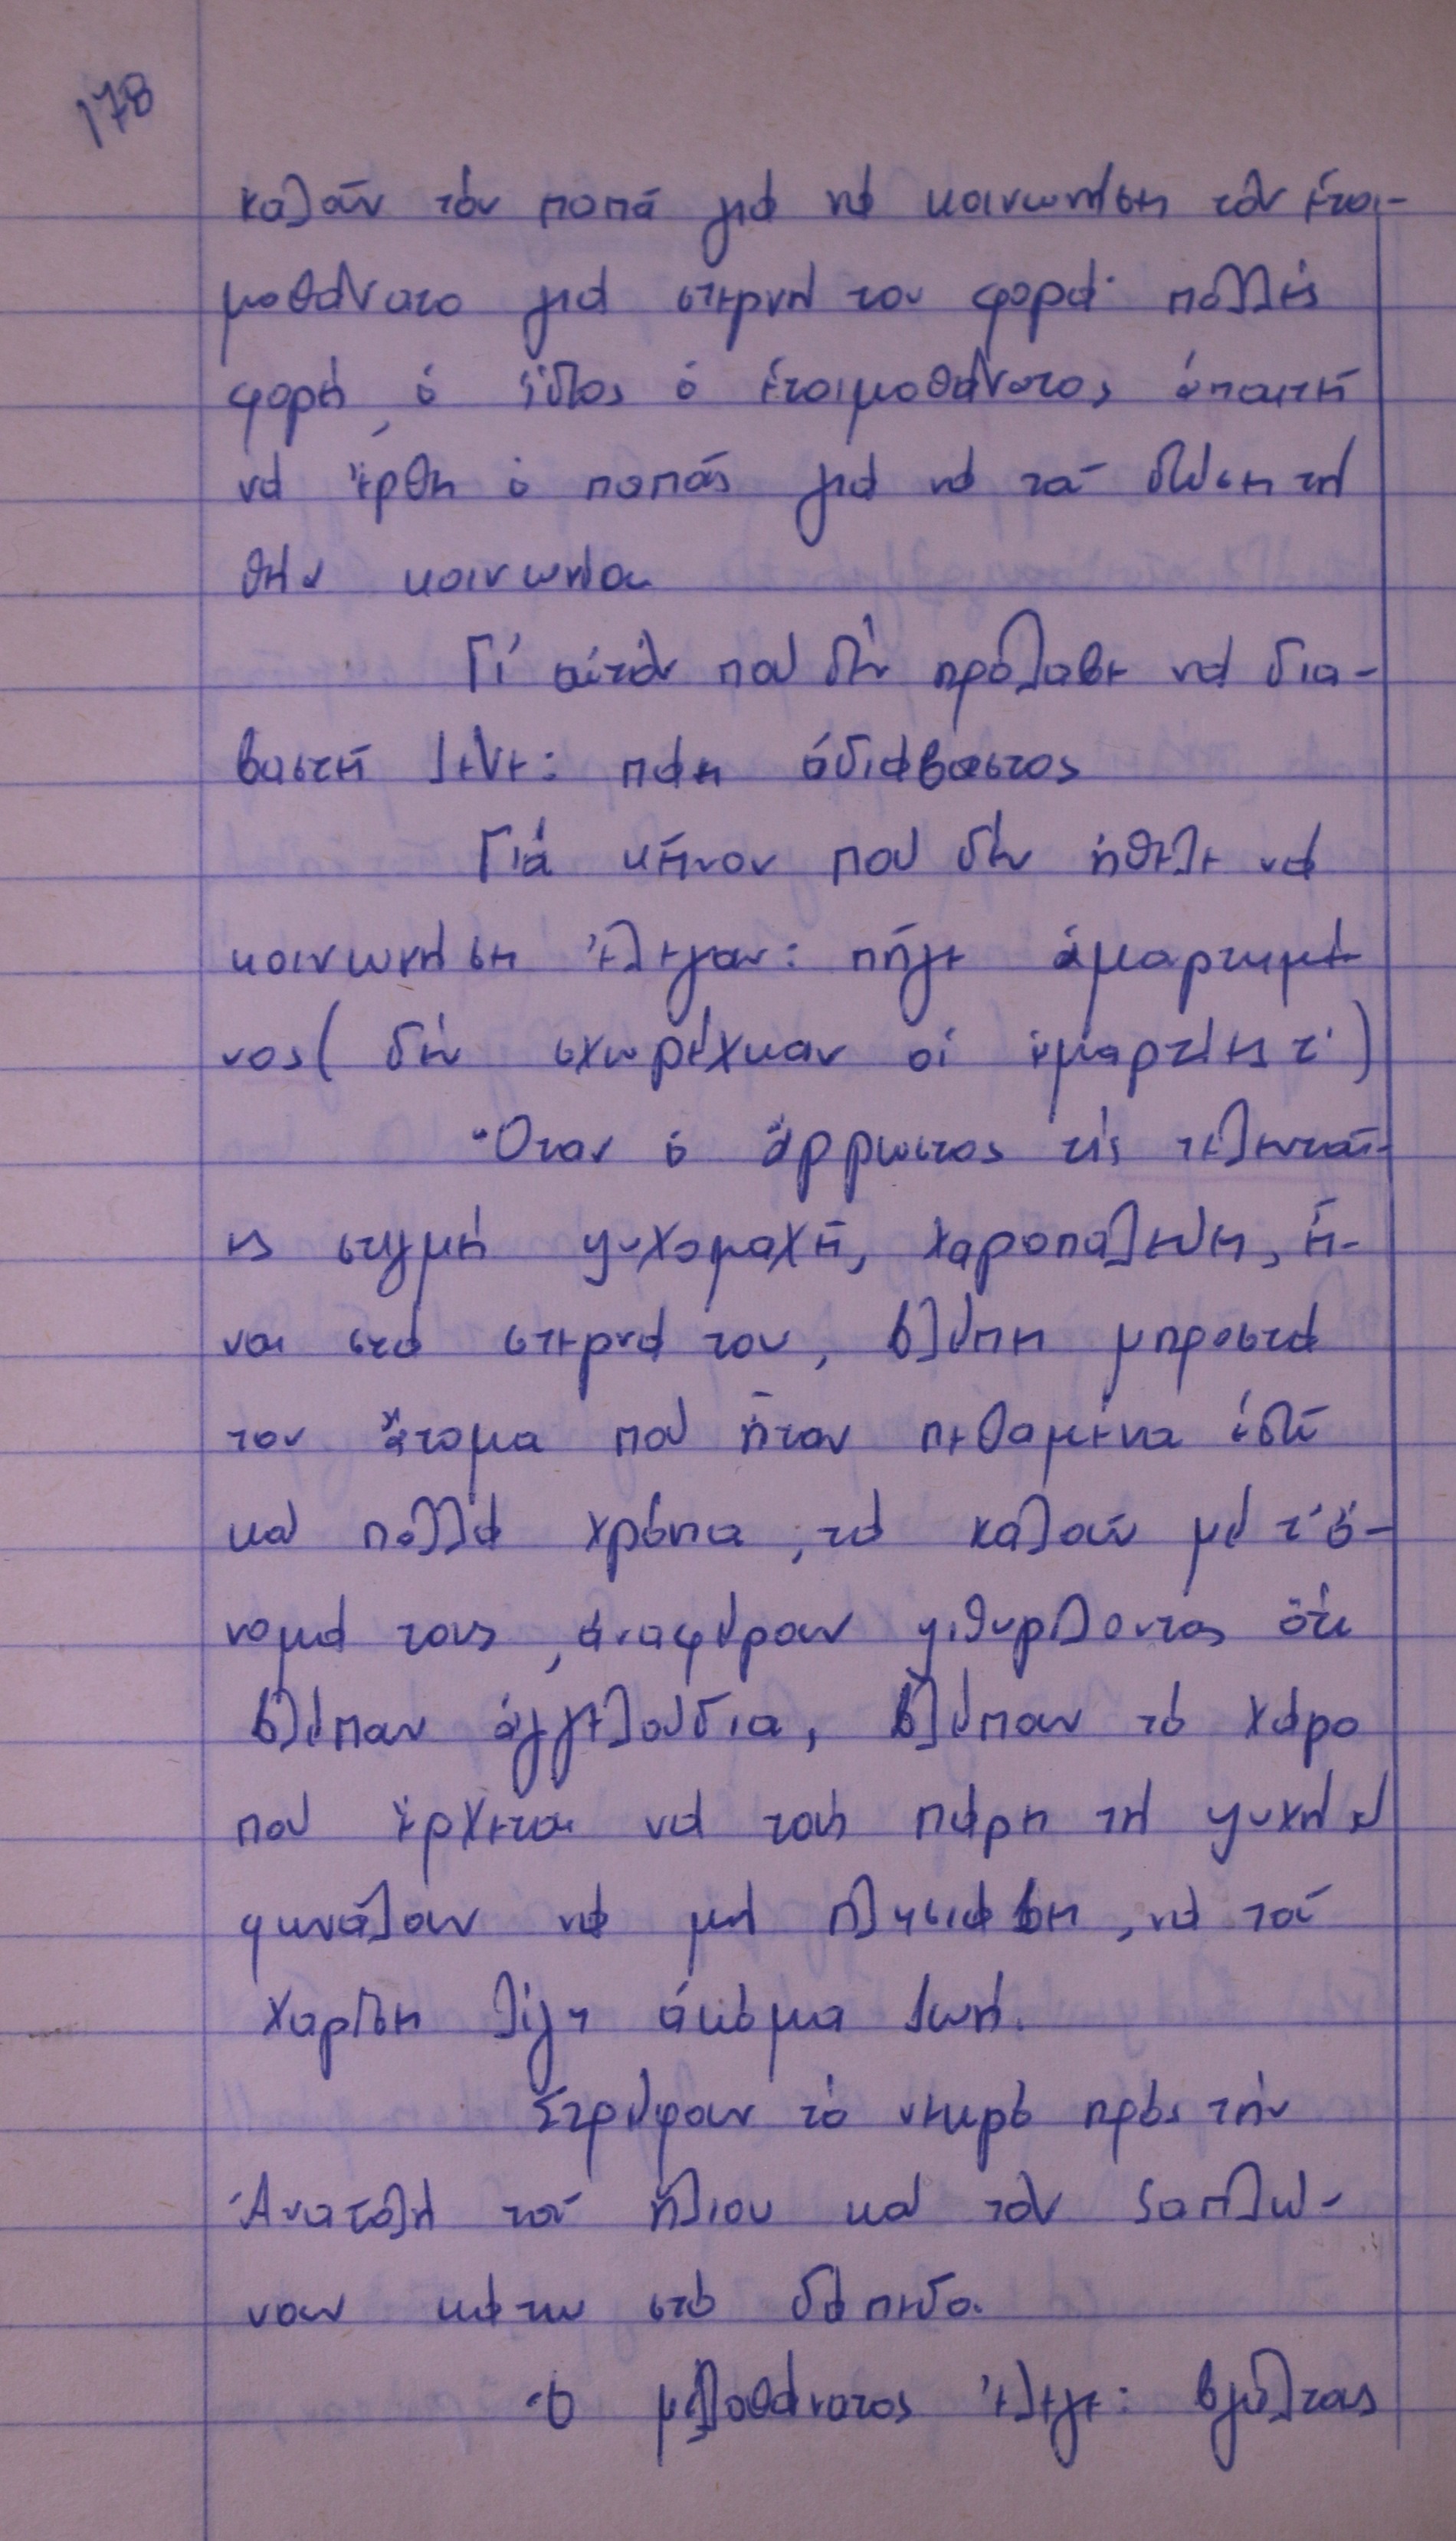 178
καλοῦν τόν παπά γιά νά κοινωνήση τόν ἑτοι-
μοθάνατο γιά στερνή του φορά· πολλές
φορές ὁ ἴδιος ὁ ἑτοιμοθάνατος ἀπαιτεῖ
νά ἔρθη ὁ παπάς γιά νά τοῦ δώσει τή
θεία κοινωνία
Γι' αὐτόν πού δέν πρόλαβε νά δια-
βαστῆ λένε: πάει ἀδιάβαστος
Γιά κεῖνον πού δέν ἤθελε νά
κοινωνήσει ἔλεγαν: πῆγε ἁμαρτωμέ
νος (δέν σχωρέχκαν οἱ ἁμαρτίες τ')
Ὅταν ὁ ἄρρωστος τίς τελευταῖ-
ες στιγμές ψυχομαχεῖ, χαροπαλεύει, εἶ-
ναι στά στερνά του, βλέπει μπροστά
του ἄτομα πού ἦταν πεθαμένα ἐδῶ
καί πολλά χρόνια, τά καλοῦν μέ τ' ὄ-
νομά τους, ἀναφέρουν ψιθυρίζοντας ὅτι
βλέπουν ἀγγελούδια, βλέπουν τό χάρο
πού ἔρχεται νά τούς πάρει τή ψυχή κ'
φωνάζουν νά μή πλησιάσει, νά τοῦ
χαρίσει λίγη ἀκόμα ζωή.
Στρέφουν τό νεκρό πρός τήν
Ἀνατολή τοῦ ἥλιου καί τόν ξαπλώ-
νουν κάτω στό δάπεδο.
Ὁ μελλοθάνατος ἔλεγε: βγάλτους